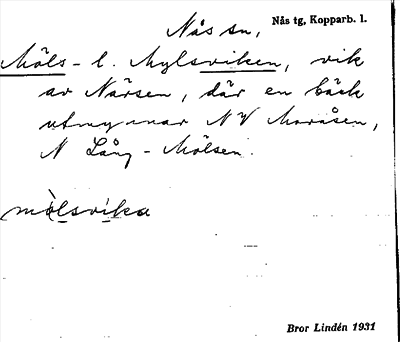 Nås sn,
Nås tg, Kopparb. l.
Möls- l. Mylsviken, vik
av Närsen, där en bäck
utmynnar NV Moråsen,
N Lång-Mölsen.
mòlsvika
Bror Lindén 1931